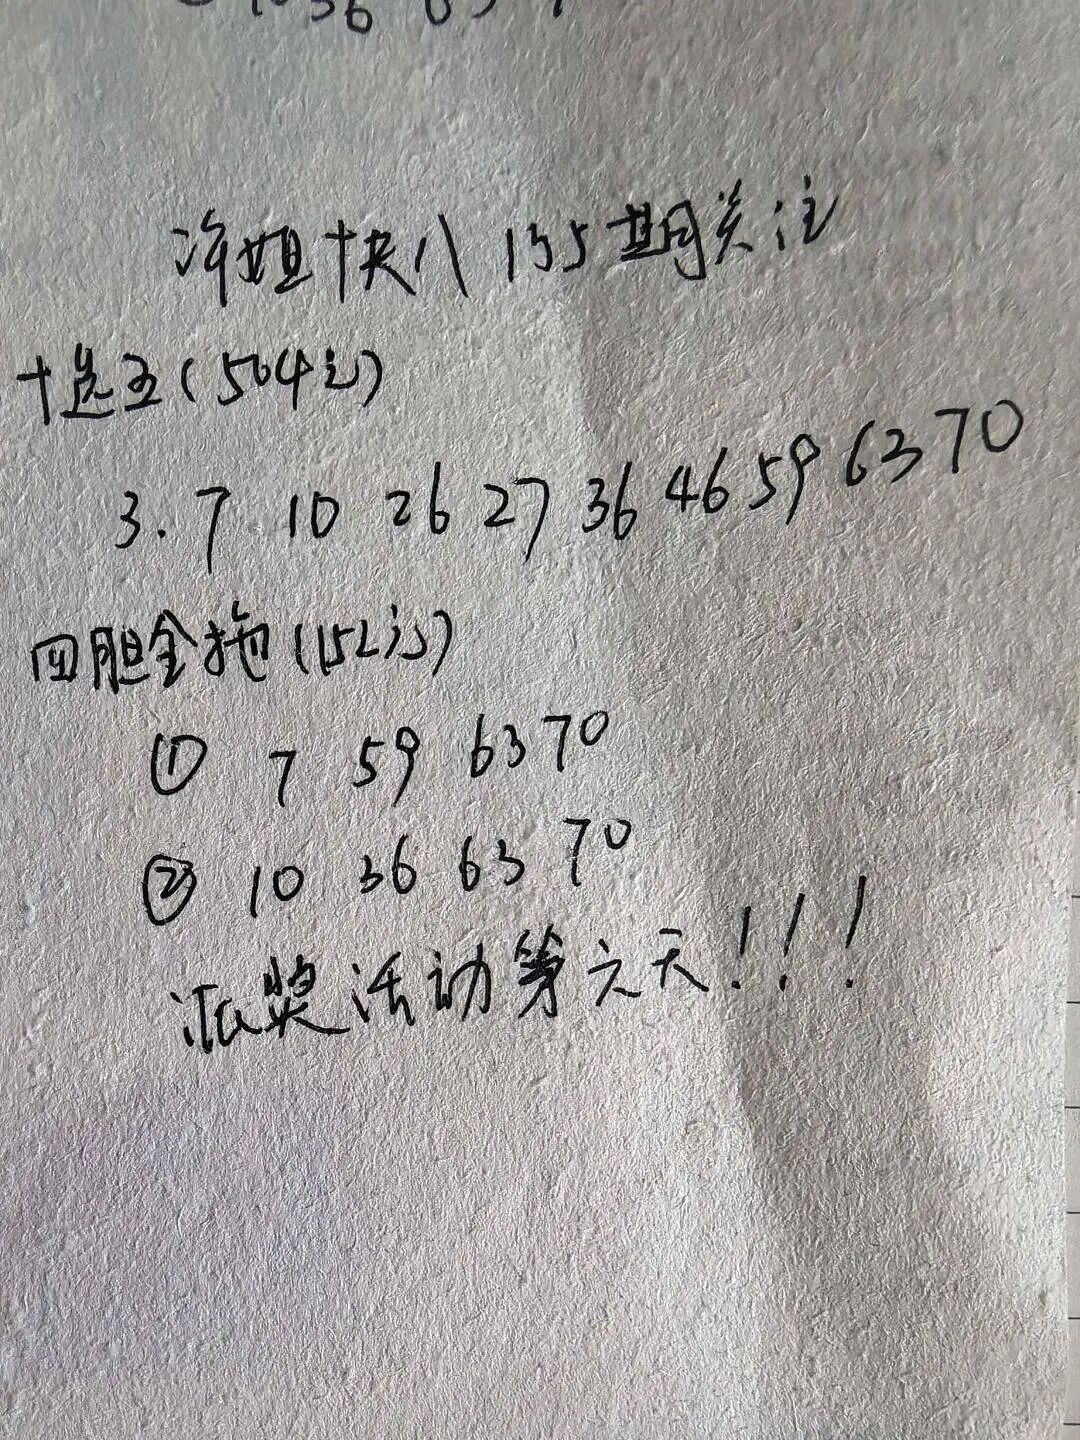 净姐快八135期关注
十选五(504元)
3. 7 10 26 27 36 46 59 63 70
四胆全拖(152元)
① 7 59 63 70
② 10 36 63 70
派奖活动第六天!!!